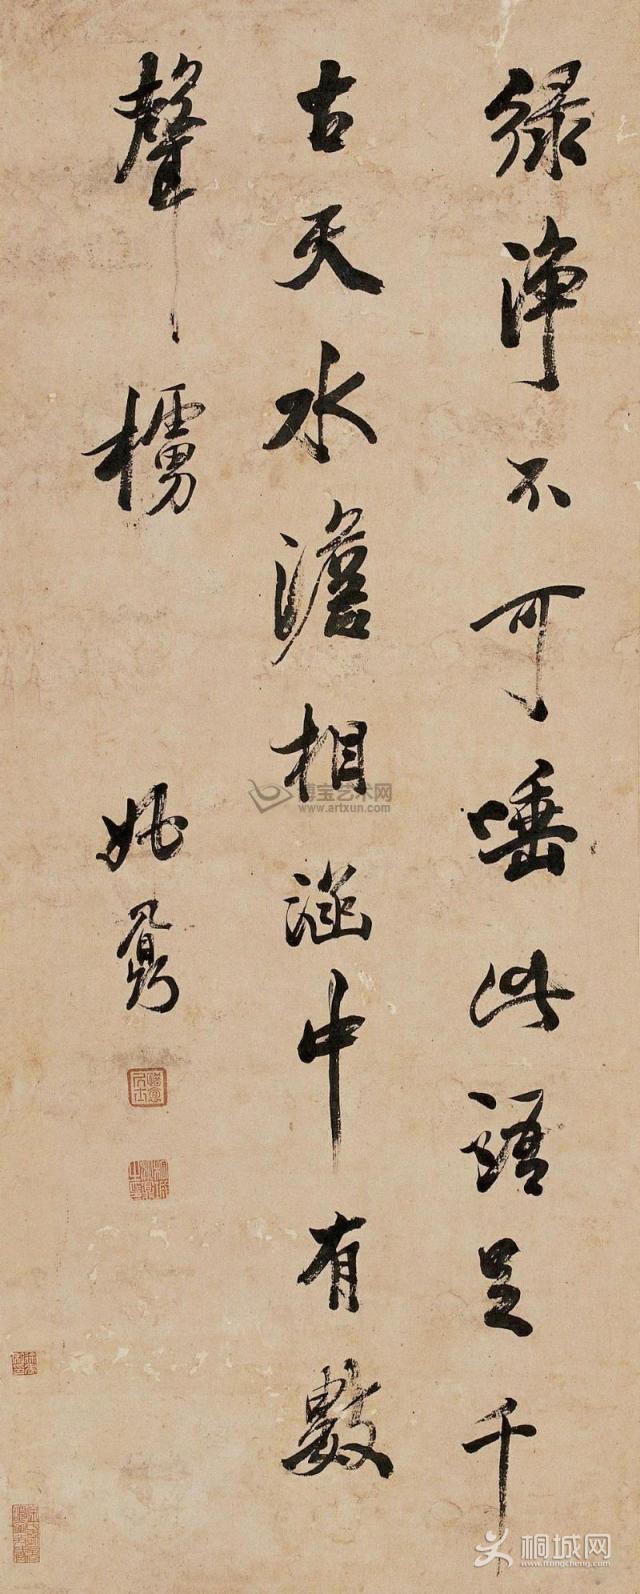 緑淨不可唾此語足千
古天水澹相涵中有數
聲櫓
姚鼐
博宝艺术网
www.artxun.com
桐城网
www.tongcheng.com